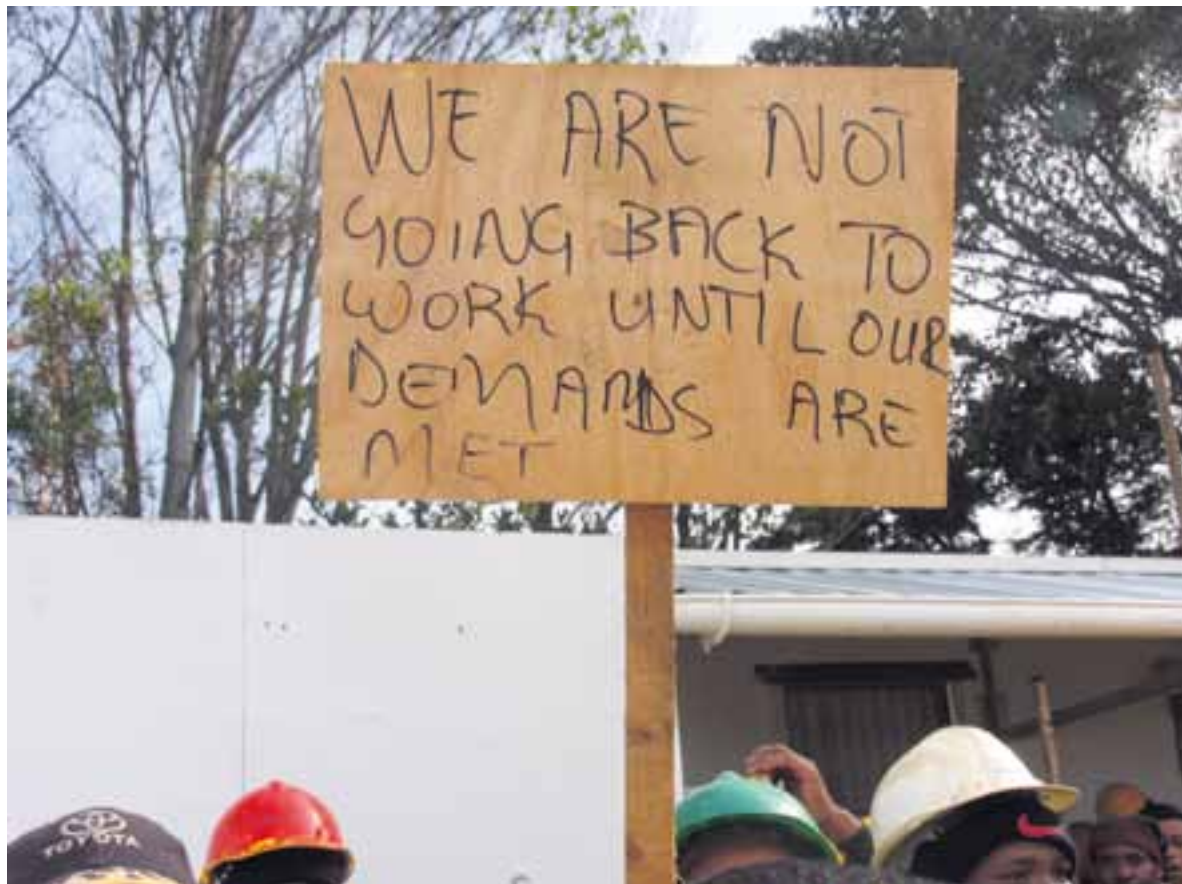 WE ARE NOT
GOING BACK TO
WORK UNTIL OUR
DEMANDS ARE
MET
TOYOTA